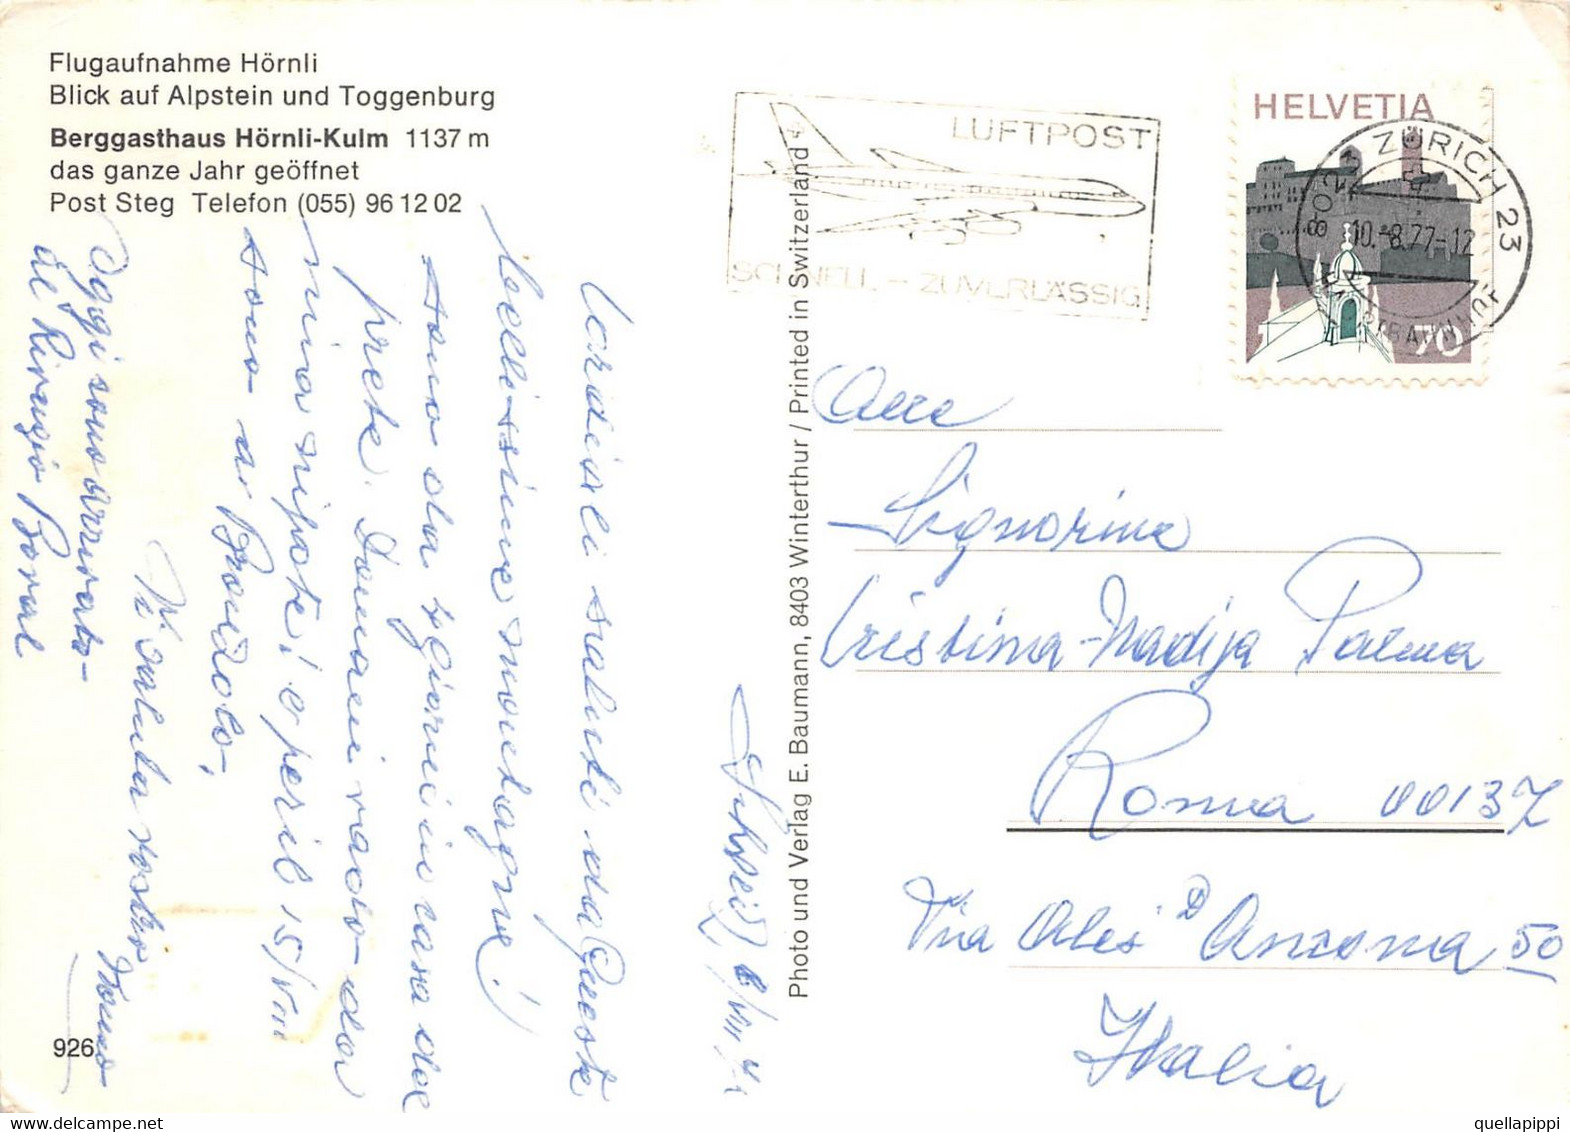 Flugaufnahme Hörnli
Blick auf Alpstein und Toggenburg
Berggasthaus Hörnli-Kulm 1137 m
das ganze Jahr geöffnet
Post Steg Telefon (055) 96 12 02
LUFTPOST
SCHNELL - ZUVERLÄSSIG
HELVETIA
70
8023 ZÜRICH 23
10.-8.77-12
Photo und Verlag E. Baumann, 8403 Winterthur / Printed in Switzerland
Cordiali saluti da queste
bellissime montagne!
sono da 4 giorni in casa del
prete. Domani vado da
mia nipote! e per il 15/VIII
sono a
Oggi sono arrivato
al Rifugio
Vi saluta vostro
Signorina
Cristina-Nadija Palma
Roma 00137
Via Ales D'Ancona 50
Italia
926
quellapippi